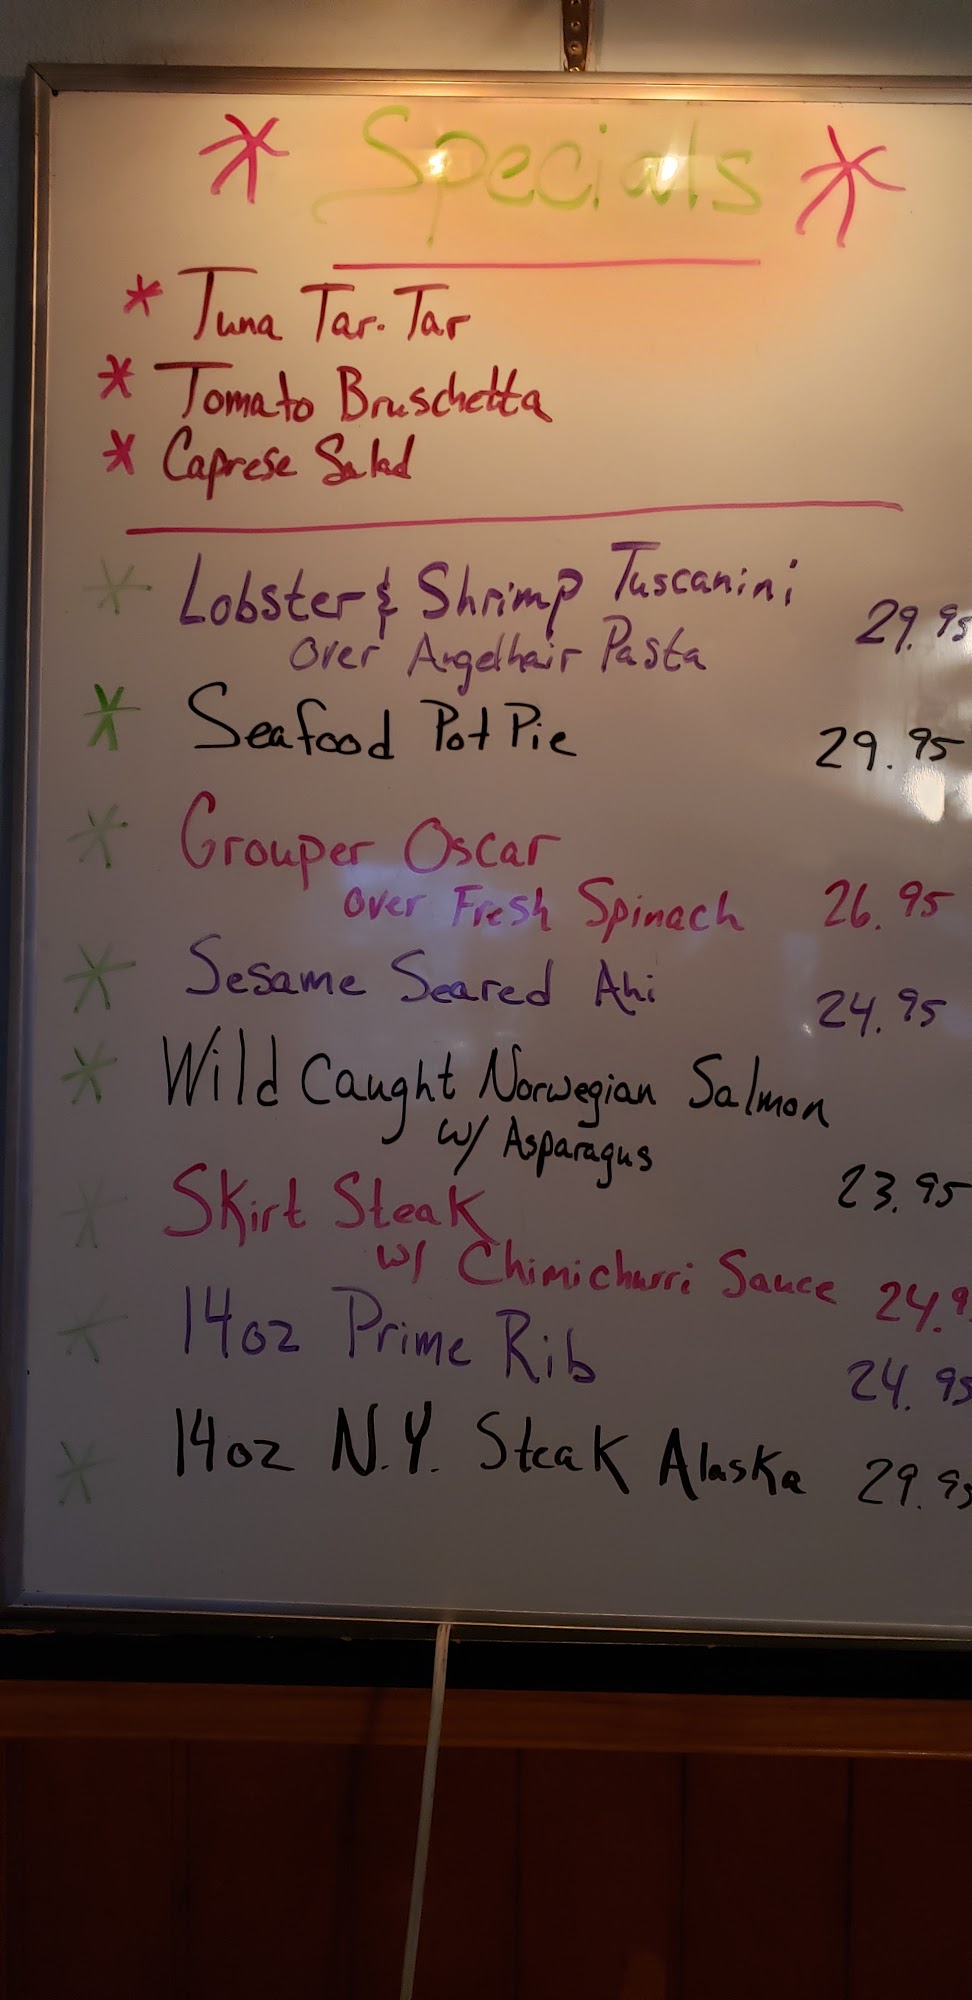 * Specials *
* Tuna Tar. Tar
* Tomato Bruschetta
* Caprese Salad
* Lobster & Shrimp Tuscanini
over Angelhair Pasta 29.95
* Seafood Pot Pie 29.95
* Grouper Oscar
over Fresh Spinach 26.95
* Sesame Seared Ahi 24.95
* Wild Caught Norwegian Salmon
w/ Asparagus 23.95
* Skirt Steak
w/ Chimichurri Sauce 24.9
* 14oz Prime Rib 24.95
* 14oz N.Y. Steak Alaska 29.95